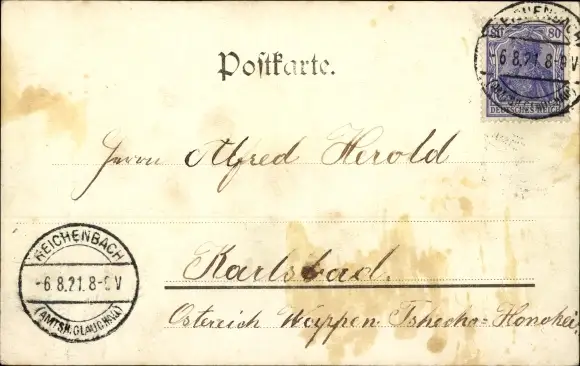 Postkarte.
80 80
DEUTSCHES REICH
REICHENBACH
-6.8.21.8-9V
(AMTSH. GLAUCHAU)
Herrn Alfred Herold
REICHENBACH
-6.8.21.8-9V
(AMTSH. GLAUCHAU)
Karlsbad.
Östereich Wappen Tshecho=